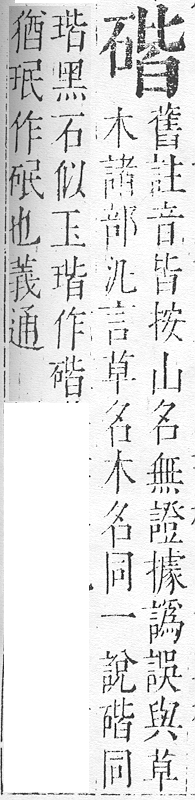 碏
舊註音皆按山名無證據譌誤與草
木諸部汎言草名木名同一說碏同
瑎黑石似玉瑎作碏
猶珉作砇也義通